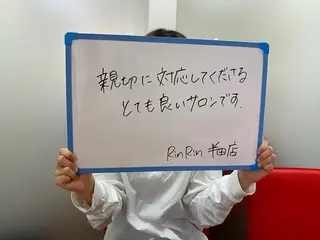 親切に対応してくださる
とても良いサロンです.
RinRin 半田店